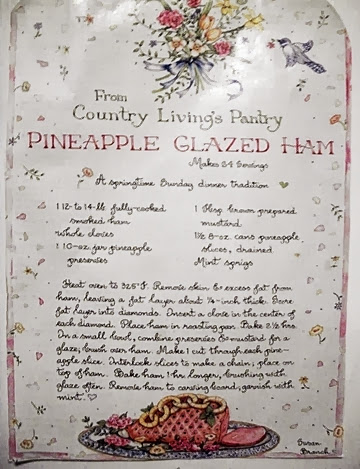 From
Country Living's Pantry
PINEAPPLE GLAZED HAM
Makes 24 Servings
A springtime Sunday dinner tradition
1 12- to 14-lb. fully-cooked
smoked ham
Whole cloves
1 10-oz. jar pineapple
preserves
1 tblsp. brown prepared
mustard
1½ 8-oz. cans pineapple
slices, drained
Mint sprigs
Heat oven to 325°F. Remove skin & excess fat from
ham, leaving a fat layer about ¼-inch thick. Score
fat layer into diamonds. Insert a clove in the center of
each diamond. Place ham in roasting pan. Bake 2½ hrs.
In a small bowl, combine preserves & mustard for a
glaze; brush over ham. Make 1 cut through each pine-
apple slice. Interlock slices to make a chain; place on
top of ham. Bake ham 1 hr. longer, brushing with
glaze often. Remove ham to carving board; garnish with
mint. ♡
Susan
Branch